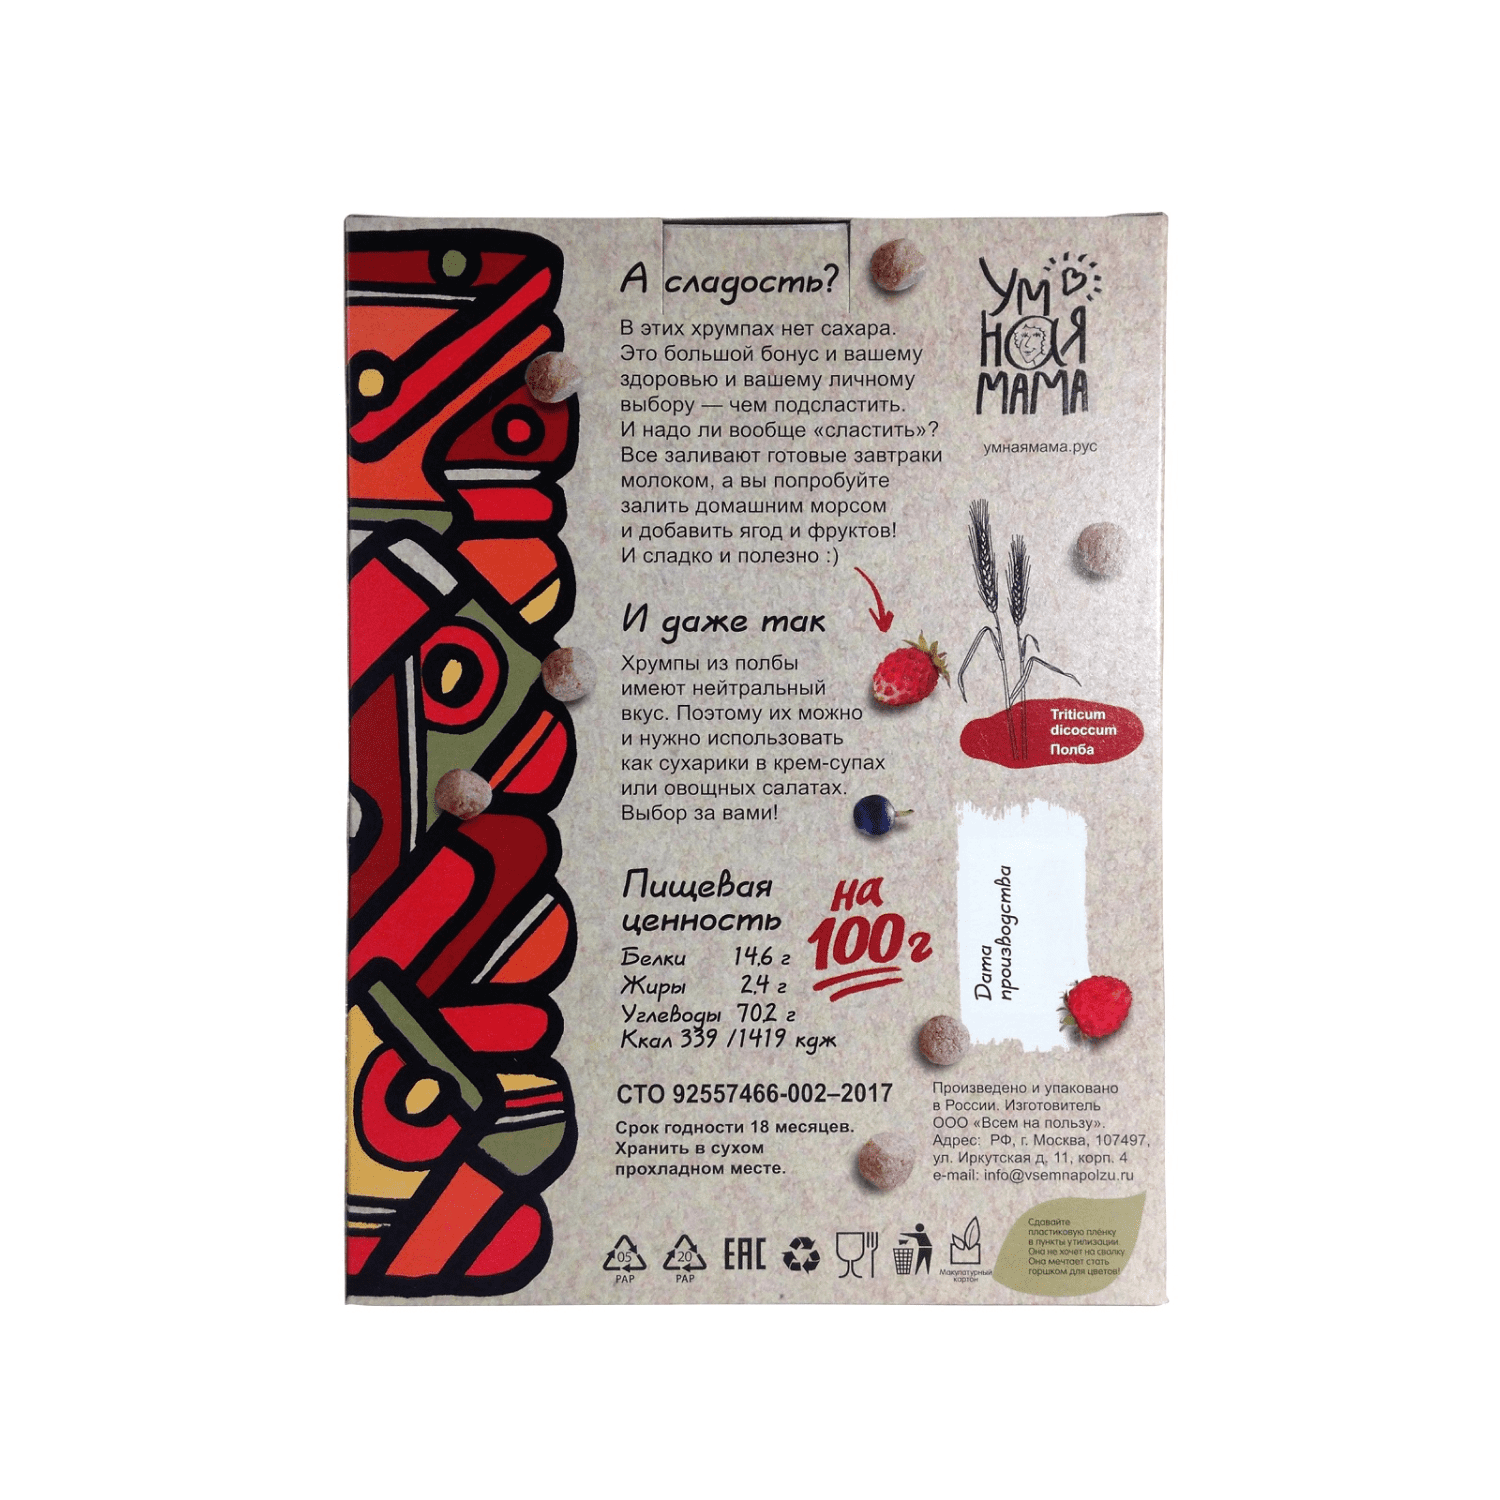 А сладость?
В этих хрумпах нет сахара.
Это большой бонус и вашему
здоровью и вашему личному
выбору — чем подсластить.
И надо ли вообще «сластить»?
Все заливают готовые завтраки
молоком, а вы попробуйте
залить домашним морсом
и добавить ягод и фруктов!
И сладко и полезно :)
И даже так
Хрумпы из полбы
имеют нейтральный
вкус. Поэтому их можно
и нужно использовать
как сухарики в крем-супах
или овощных салатах.
Выбор за вами!
Пищевая
ценность
на
100 г
Белки 14,6 г
Жиры 2,4 г
Углеводы 70,2 г
Ккал 339 /1419 кдж
СТО 92557466-002–2017
Срок годности 18 месяцев.
Хранить в сухом
прохладном месте.
УМ
НАЯ
МАМА
умнаямама.рус
Triticum
dicoccum
Полба
Дата
производства
Произведено и упаковано
в России. Изготовитель
ООО «Всем на пользу».
Адрес: РФ, г. Москва, 107497,
ул. Иркутская д, 11, корп. 4
e-mail: info@vsemnapolzu.ru
05
PAP
20
PAP
EAC
Макулатурный
картон
Сдавайте
пластиковую плёнку
в пункты утилизации.
Она не хочет на свалку.
Она мечтает стать
горшком для цветов!